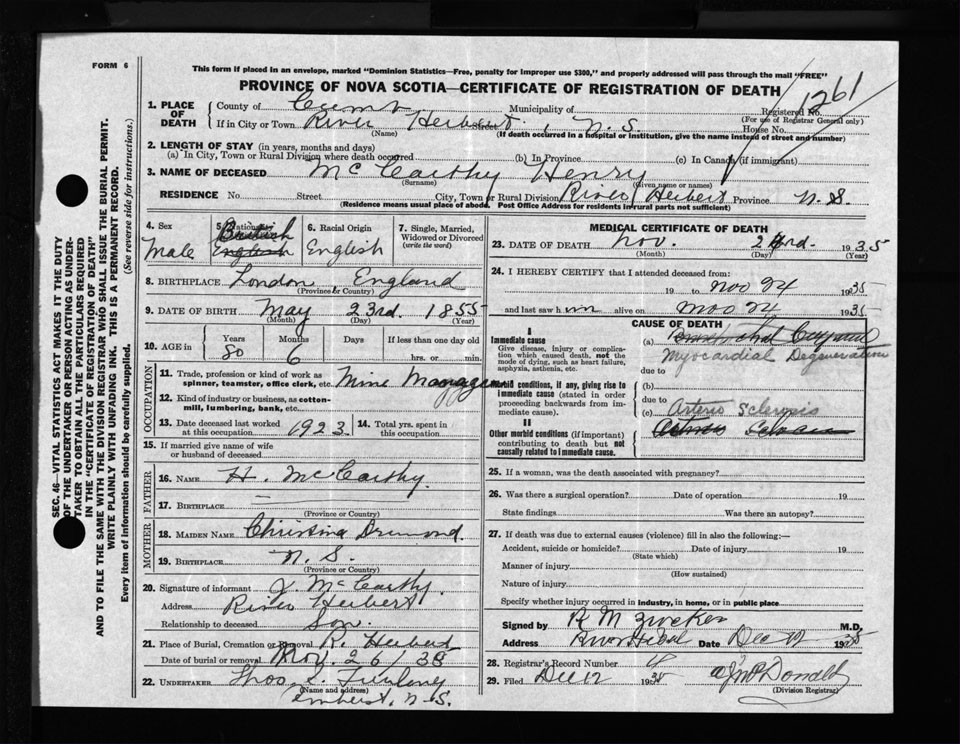 FORM 6
This form if placed in an envelope, marked "Dominion Statistics—Free, penalty for improper use $300," and properly addressed will pass through the mail "FREE"
PROVINCE OF NOVA SCOTIA—CERTIFICATE OF REGISTRATION OF DEATH
1. PLACE OF DEATH County of Cumb Municipality of Registered No. 1261
(For use of Registrar General only)
If in City or Town River Herbert Street N. S. House No.
(Name) (If death occurred in a hospital or institution, give the name instead of street and number)
2. LENGTH OF STAY (in years, months and days)
(a) In City, Town or Rural Division where death occurred (b) In Province (c) In Canada (if immigrant)
3. NAME OF DECEASED McCarthy Henry
(Surname) (Given name or names)
RESIDENCE No Street City, Town or Rural Division River Herbert Province N. S.
(Residence means usual place of abode. Post Office Address for residents in rural parts not sufficient)
SEC. 46—VITAL STATISTICS ACT MAKES IT THE DUTY
OF THE UNDERTAKER OR PERSON ACTING AS UNDER-
TAKER TO OBTAIN ALL THE PARTICULARS REQUIRED
IN THE "CERTIFICATE OF REGISTRATION OF DEATH"
AND TO FILE THE SAME WITH THE DIVISION REGISTRAR WHO SHALL ISSUE THE BURIAL PERMIT.
WRITE PLAINLY WITH UNFADING INK. THIS IS A PERMANENT RECORD.
Every item of information should be carefully supplied. (See reverse side for instructions.)
4. Sex 5. Nationality 6. Racial Origin 7. Single, Married, Widowed or Divorced (write the word)
Male British English English
8. BIRTHPLACE London England
(Province or Country)
9. DATE OF BIRTH May 23rd. 1855
(Month) (Day) (Year)
10. AGE in Years Months Days If less than one day old
80 6 hrs. or min.
OCCUPATION
11. Trade, profession or kind of work as
spinner, teamster, office clerk, etc. Mine Manager
12. Kind of industry or business, as cotton-
mill, lumbering, bank, etc.
13. Date deceased last worked at this occupation 1923 14. Total yrs. spent in this occupation
15. If married give name of wife
or husband of deceased
FATHER
16. NAME H. McCarthy.
17. BIRTHPLACE —
(Province or Country)
MOTHER
18. MAIDEN NAME Christina Drumond.
19. BIRTHPLACE N. S.
(Province or Country)
20. Signature of informant J McCarthy.
Address River Herbert
Relationship to deceased Son.
21. Place of Burial, Cremation or Removal R. Herbert
Date of burial or removal Nov. 26/35
22. UNDERTAKER Thos Furlong
(Name and address)
Amherst, N. S.
MEDICAL CERTIFICATE OF DEATH
23. DATE OF DEATH Nov. 23rd. 1935
(Month) (Day) (Year)
24. I HEREBY CERTIFY that I attended deceased from:
19 to Nov 24 1935
and last saw him alive on Nov 24 1935
CAUSE OF DEATH
I
Immediate cause
Give disease, injury or complica-
tion which caused death, not the
mode of dying, such as heart failure,
asphyxia, asthenia, etc.
(a)
Myocardial Degeneration
due to
Morbid conditions, if any, giving rise to
immediate cause (stated in order
proceeding backwards from im-
mediate cause).
(b)
due to
(c) Arterio Sclerosis
II
Other morbid conditions (if important)
contributing to death but not
causally related to immediate cause.
25. If a woman, was the death associated with pregnancy?
26. Was there a surgical operation? Date of operation 19
State findings Was there an autopsy?
27. If death was due to external causes (violence) fill in also the following:—
Accident, suicide or homicide? Date of injury 19
(State which)
Manner of injury
(How sustained)
Nature of injury
Specify whether injury occurred in industry, in home, or in public place
Signed by R M Zwicker M.D.
Address River Hebert Date Dec 12 1935
28. Registrar's Record Number
29. Filed Dec 12 1935
(Division Registrar)